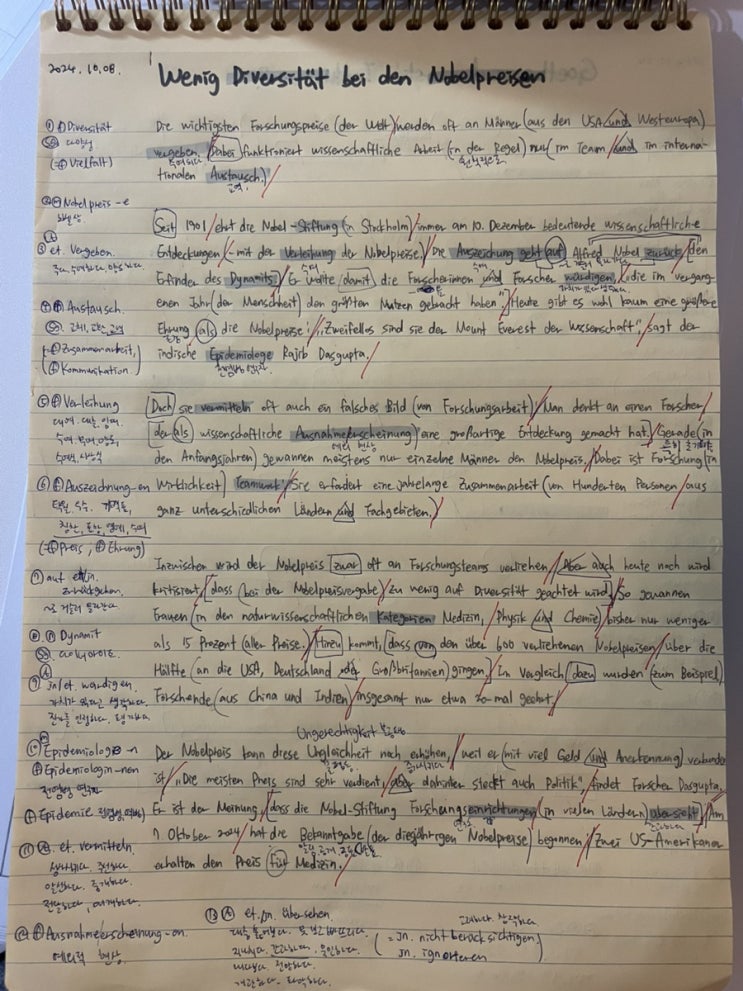 2024.10.08.
Wenig Diversität bei den Nobelpreisen
① ⓕ Diversität
다양성
(=ⓕ Vielfalt)
Die wichtigsten Forschungspreise (der Welt) werden oft an Männer (aus den USA und Westeuropa)
vergeben. Dabei funktioniert wissenschaftliche Arbeit (in der Regel) nur (im Team und im interna-
수여되다 원칙적으로
tionalen Austausch.)
교역.
② Nobelpreis -e
노벨상.
③ et. Vergeben.
주다, 수여하다, 양도하다
④ Austausch.
교체, 교환, 교역
(=ⓕ Zusammenarbeit,
ⓕ Kommunikation.
Seit 1901 ehrt die Nobel-Stiftung (in Stockholm) immer am 10. Dezember bedeutende wissenschaftliche
Entdeckungen - mit der Verleihung der Nobelpreise. Die Auszeichnung geht auf Alfred Nobel zurück, den
수여
Erfinder des Dynamits. Er wollte damit die Forscherinnen und Forscher würdigen, „die im vergang-
enen Jahr (der Menschheit) den größten Nutzen gebracht haben." Heute gibt es wohl kaum eine größere
Ehrung als die Nobelpreise: „Zweifellos sind sie der Mount Everest der Wissenschaft", sagt der
indische Epidemiologe Rajib Dasgupta.
전염병 연구자
⑤ ⓕ Verleihung
대여, 대출, 임대
수여
수여식, 시상식
⑥ ⓕ Auszeichnung-en
(=ⓕ Preis, ⓕ Ehrung)
Doch sie vermitteln oft auch ein falsches Bild (von Forschungsarbeit): Man denkt an einen Forscher,
der als wissenschaftliche Ausnahmeerscheinung eine großartige Entdeckung gemacht hat. Gerade (in
예외 현상
den Anfangsjahren) gewannen meistens nur einzelne Männer den Nobelpreis. Dabei ist Forschung (in
Wirklichkeit) Teamwork: Sie erfordert eine jahrelange Zusammenarbeit (von Hunderten Personen aus
ganz unterschiedlichen Ländern und Fachgebieten.)
⑦ auf et. zurückgehen.
~로 거슬러 올라가다
⑧ Dynamit
다이너마이트.
⑨ jn/et. würdigen.
가치가 있다고 생각하다.
진가를 인정하다. 평가하다.
Inzwischen wird der Nobelpreis zwar oft an Forschungsteams verliehen. Aber auch heute noch wird
kritisiert, dass (bei der Nobelpreisvergabe) zu wenig auf Diversität geachtet wird. So gewannen
Frauen (in den naturwissenschaftlichen Kategorien Medizin, Physik und Chemie) bisher nur weniger
als 15 Prozent (aller Preise.) Hinzu kommt, dass von den über 600 verliehenen Nobelpreisen über die
Hälfte (an die USA, Deutschland oder Großbritannien) gingen. Im Vergleich dazu wurden (zum Beispiel)
Forschende (aus China und Indien) insgesamt nur etwa 20-mal geehrt.
Ungerechtigkeit 불공평
⑩ Epidemiologe -n
ⓕ Epidemiologin-nen
전염병 연구자
ⓕ Epidemie
⑪ et. vermitteln.
중개하다.
전달하다
Der Nobelpreis kann diese Ungleichheit noch erhöhen, weil er (mit viel Geld und Anerkennung) verbunden
불평등
ist. „Die meisten Preis sind sehr verdient, aber dahinter steckt auch Politik", findet Forscher Dasgupta.
Er ist der Meinung, dass die Nobel-Stiftung Forschungseinrichtungen (in vielen Ländern) übersieht. Am
7 Oktober 2024 hat die Bekanntgabe (der diesjährigen Nobelpreise) begonnen: Zwei US-Amerikaner
erhalten den Preis für Medizin.
⑫ ⓕ Ausnahmeerscheinung-en.
예외적 현상
⑬ et./jn. übersehen.
간과하다
(= jn. nicht berücksichtigen
jn. ignorieren)